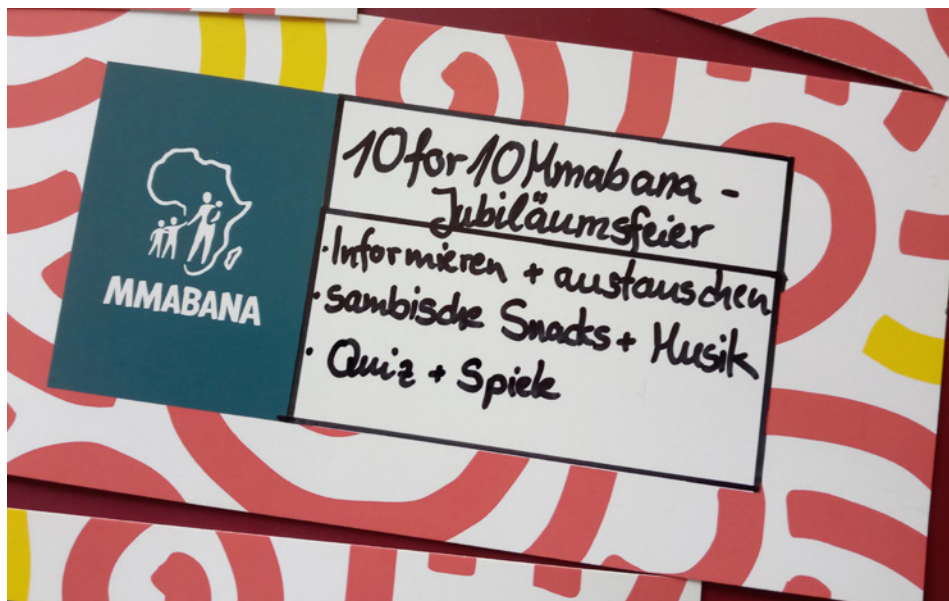 MMABANA
10 for 10 Mmabana -
Jubiläumsfeier
· Informieren + austauschen
· sambische Snacks + Musik
· Quiz + Spiele